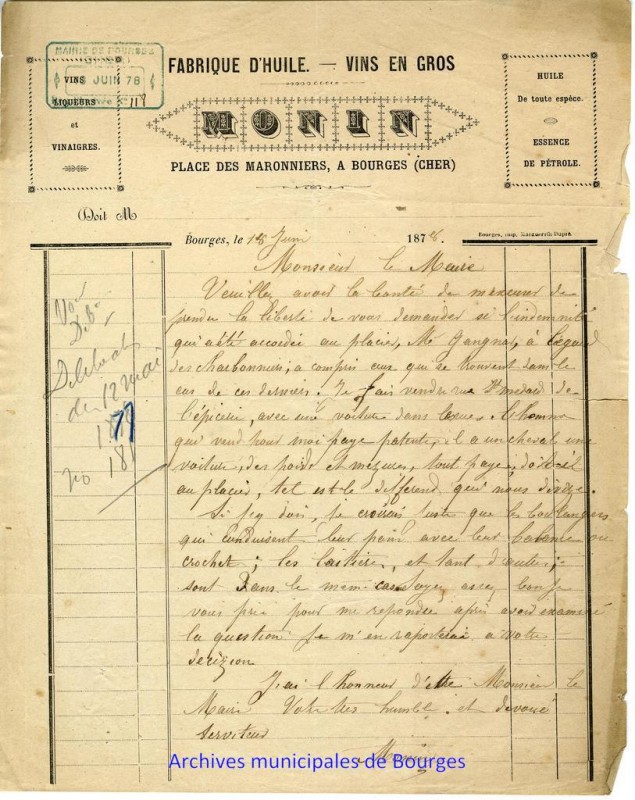 MAIRIE DE BOURGES
JUIN 78
118
FABRIQUE D'HUILE. — VINS EN GROS
VINS
LIQUEURS
et
VINAIGRES.
MONIN
HUILE
De toute espèce.
ESSENCE
DE PÉTROLE.
PLACE DES MARONNIERS, A BOURGES (CHER)
Doit M
Bourges, le 18 Juin 1878.
Bourges, imp. Marguerith-Dupré.
Monsieur le Maire
Veuillez avoir la bonté de mexcuser de
prendre la liberté de vous demander si l'indemnité
qui a été accordée au placier, Mr Gangnat, à l'égard
des charbonniers; a compris ceux qui se trouvent dans le
cas de ces derniers. Je fais vendre rue St medard de
l'épicerie, avec une voiture dans la rue. l'homme
qui vend pour moi paye patente, il a un cheval une
voiture, des poids et mesures, tout payé, doit-il
au placier, tel est le differend qui nous divise.
Si j'ey dois, je croirais juste que les boulangers
qui conduisent leur pain avec leur balance ou
crochet; les laitiere, et tant d'autres;
sont dans le meme cas. Soyez assez bon je
vous prie pour me repondre après avoir examiné
la question je m'en raporterai a votre
decizion
J'ai l'honneur d'etre Monsieur le
Maire Votre tres humble et devoué
serviteur
Monin
Voir
Deliberation
du 12 mai
1877
no 181
Archives municipales de Bourges